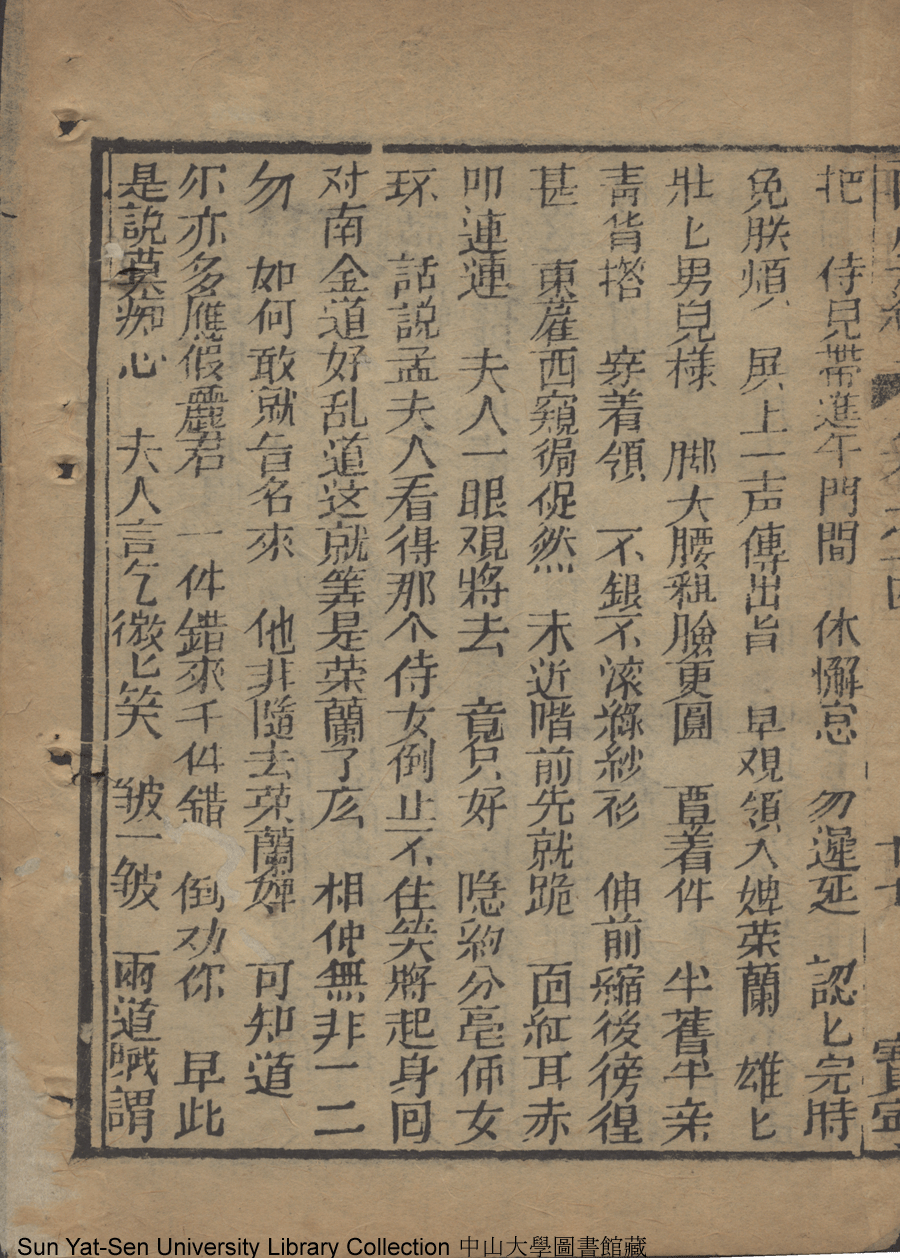 把 侍兒帶進午門間 休懈怠 勿遲延 認匕完時
免朕煩 展上一声傳出旨 早观領入婢荣蘭 雄匕
壯匕男皃様 脚大腰粗臉更圓 覃着件 半舊半亲
青背搭 穿着領 不銀不滚綠紗衫 伸前縮後徬徨
甚 東蓷西窺侷促然 未近階前先就跪 面紅耳赤
叩連連 夫人一眼观將去 竟只好 隐約分毫侕女
环 話説孟夫人看得那个侍女倒止不住笑將起身回
对南金道好乱道这就筭是荣蘭了広 相仲無非一二
勿 如何敢就旨名來 他非隨去荣蘭婢 可知道
尔亦多應假麗君 一件錯來千件錯 倒劝你 早此
是説莫痴心 夫人言乞微匕笑 皱一皱 兩道蛾謂
Sun Yat-Sen University Library Collection 中山大學圖書館藏